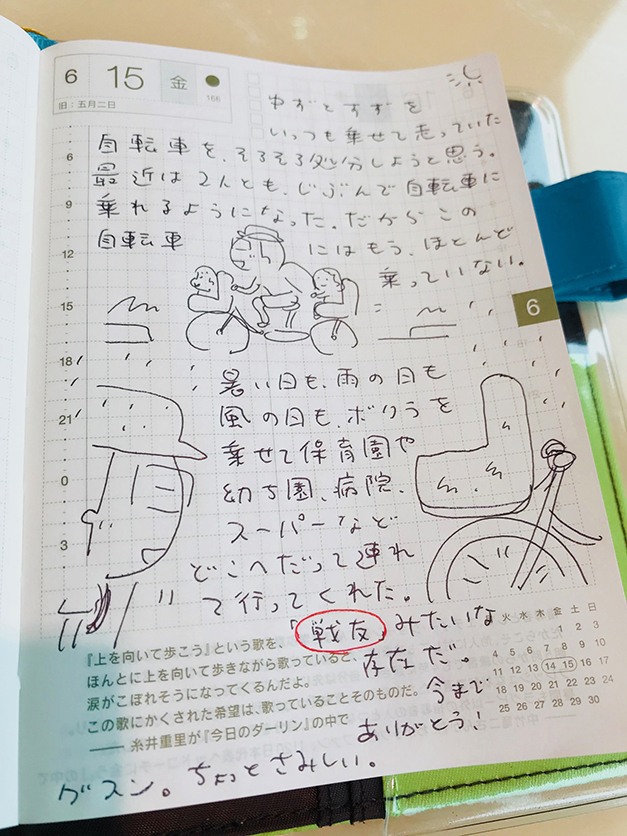 6 15 金
旧：五月二日
166
ゆずとすずを
いっつも乗せて走っていた
自転車を、そろそろ処分しようと思う。
最近は2人とも、じぶんで自転車に
乗れるようになった。だからこの
自転車 にはもう、ほとんど
乗っていない。
6
9
12
15
18
21
0
3
6
暑い日も、雨の日も
風の日も、ボクらを
乗せて保育園や
幼ち園、病院、
スーパーなど
どこへだって連れ
て行ってくれた。
「戦友」みたいな
存在だ。
今まで
ありがとう！
グスン。ちょっとさみしい。
『上を向いて歩こう』という歌を、
ほんとに上を向いて歩きながら歌っていると、
涙がこぼれそうになってくるんだよ。
この歌にかくされた希望は、歌っていることそのものだ。
—— 糸井重里が『今日のダーリン』の中で
火 水 木 金 土 日
1 2 3
4 5 6 7 8 9 10
11 12 13 14 15 16 17
18 19 20 21 22 23 24
25 26 27 28 29 30